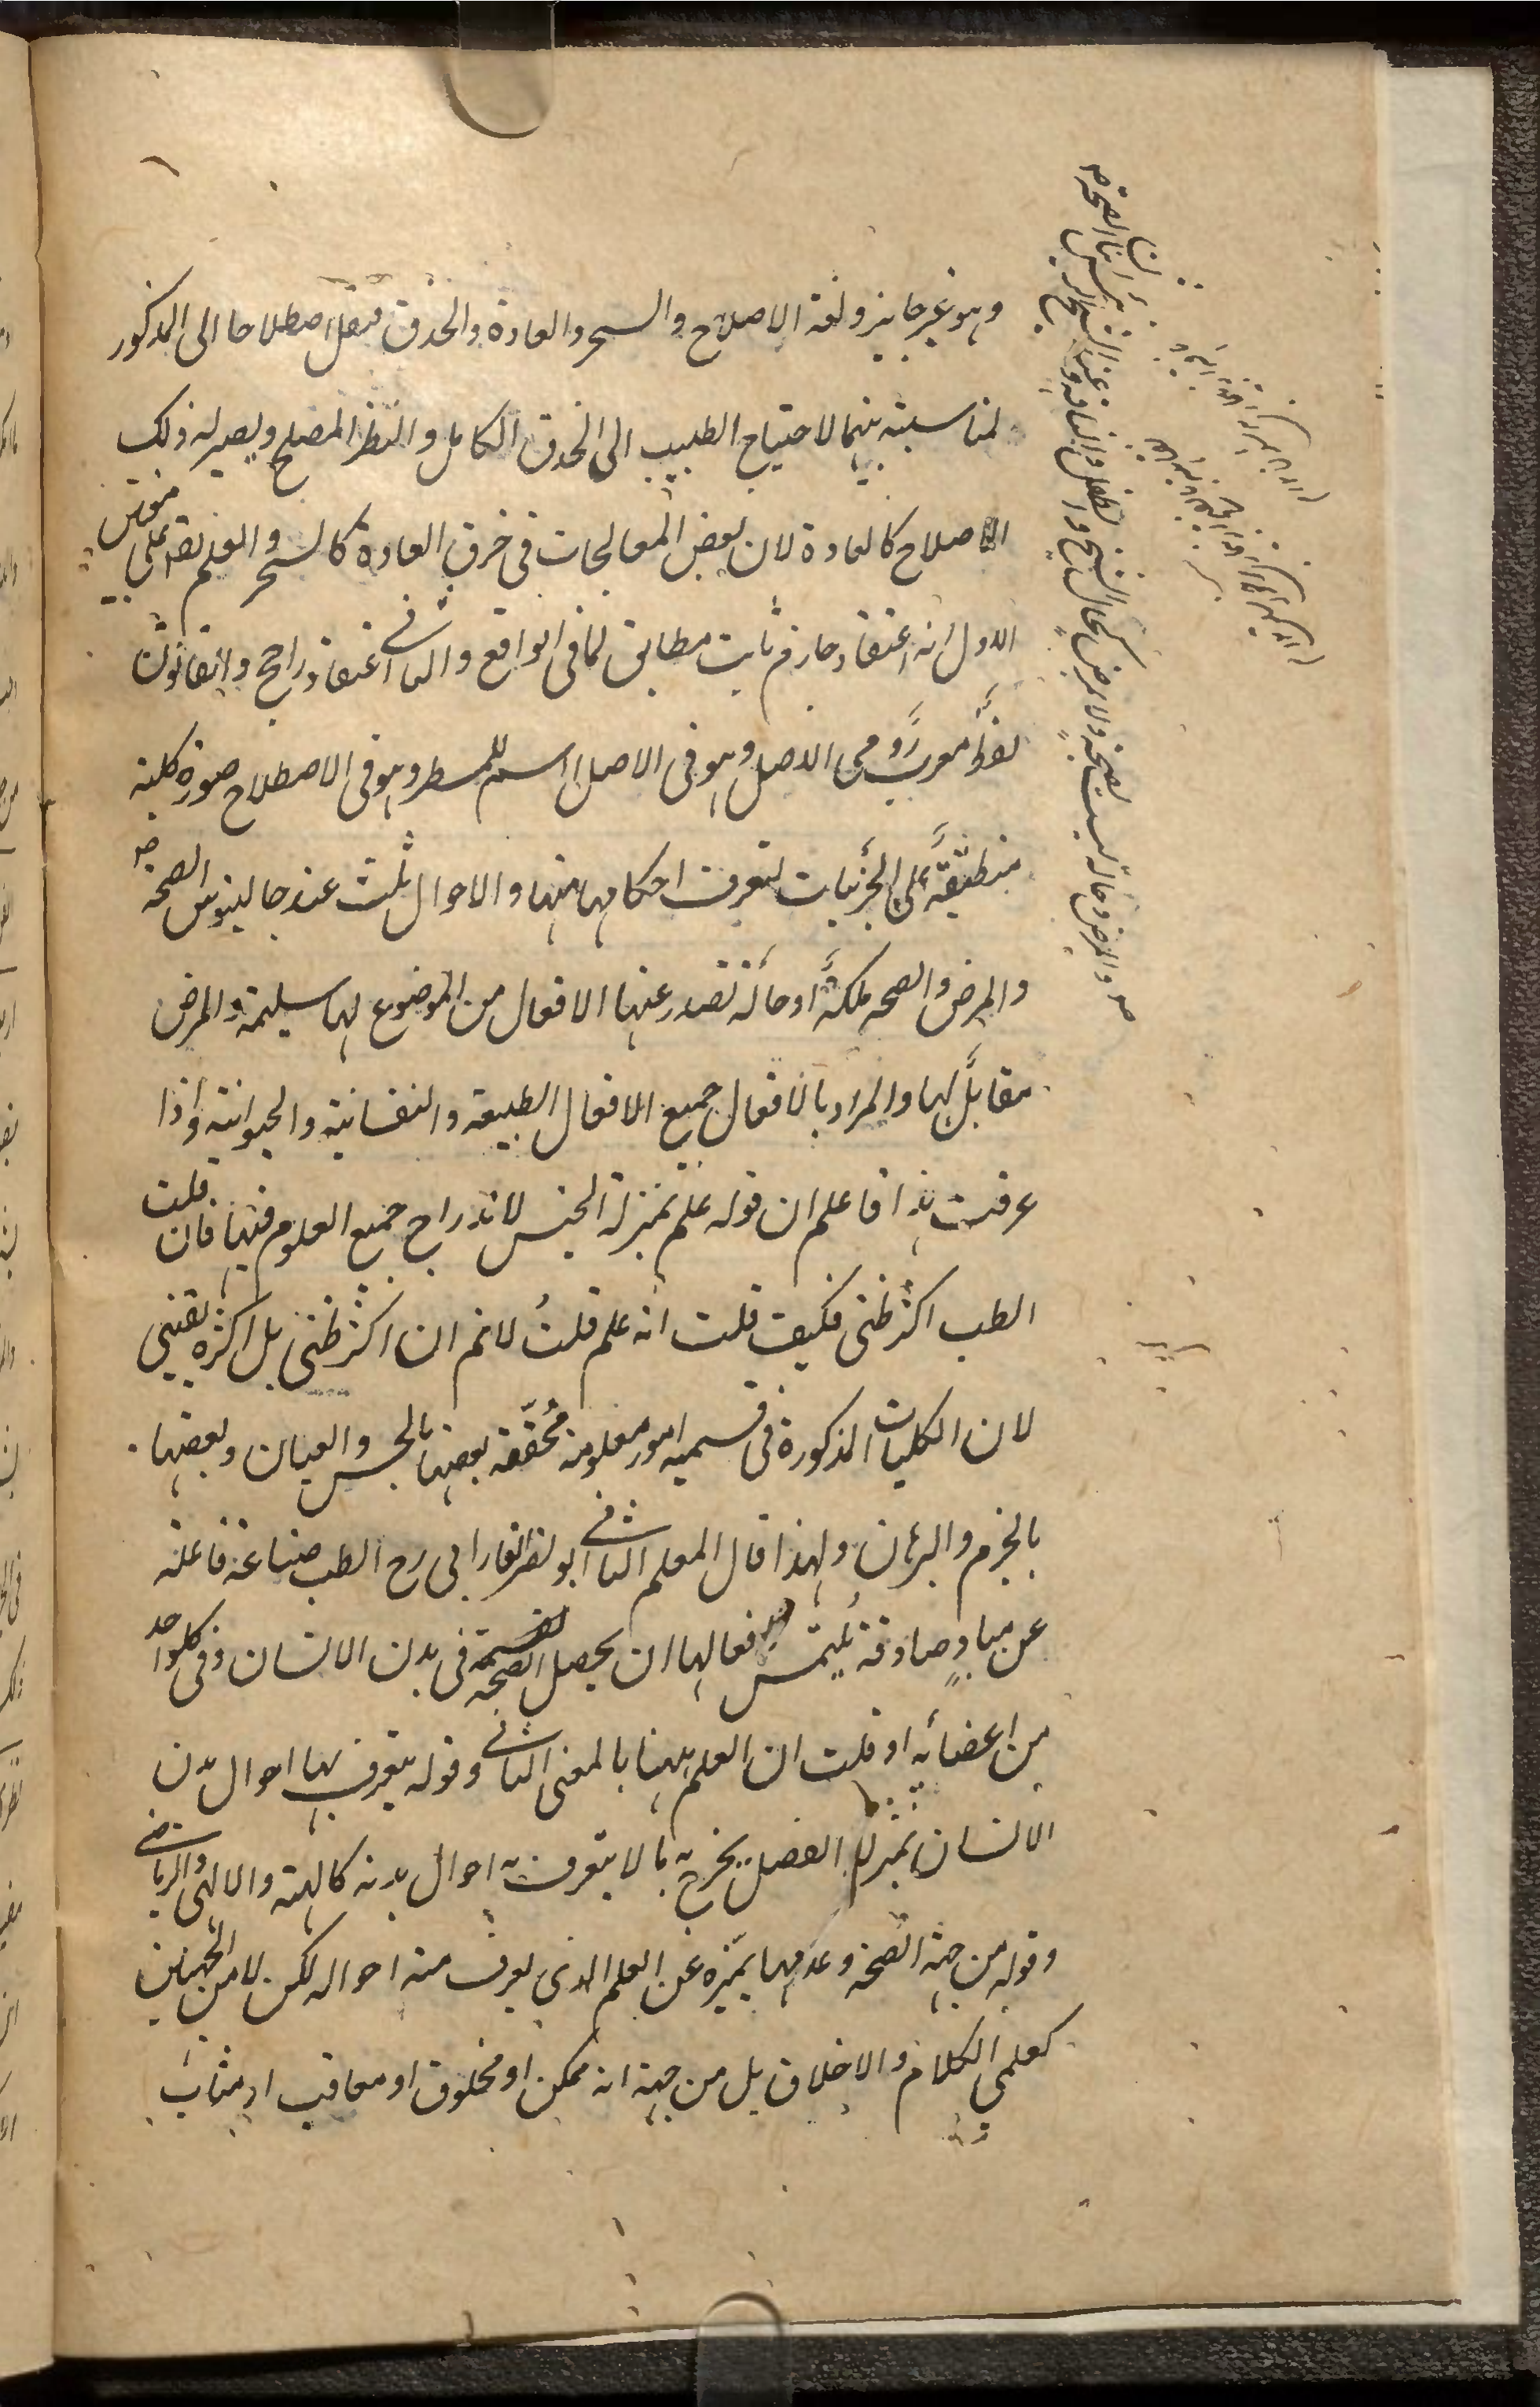 وهو غير جايز ولغة الاصلاح والسحر والعادة والحذق فنقل اصطلاحا الى المذكور
لمناسبته بينهما لاحتياج الطبيب الى الحذق الكامل والنظر المصلح ويصير له ذلك
الاصلاح كالعادة لان بعض المعالجات فى خرق العادة كالسحر والعلم يقع على معنيين
الاول انه اعتقاد جازم ثابت مطابق لما فى الواقع والثانى اعتقاد راجح والقانون
لفظ معرب رومى الاصل وهو فى الاصل اسم للمسطر وهو فى الاصطلاح صورة كلية
منطبقة على الجزئيات لتعرف احكامها منها والاحوال ثلث عند جالينوس الصحة
والمرض والصحه ملكة او حالة تصدر عنها الافعال من الموضوع لها سليمة والمرض
مقابل لها والمراد بالافعال جميع الافعال الطبيعية والنفسانية والحيوانية واذا
عرفت هذا فاعلم ان قوله علم بمنزلة الجنس لاندراج جميع العلوم فيها فان قلت
الطب اكثر ظنى فكيف قلت انه علم قلت لانم ان اكثر ظنى بل اكثره يقينى
لان الكليات المذكورة فى قسميه امور معلومة محققة بعضها بالحس والعيان وبعضها
بالجزم والبرهان ولهذا قال المعلم الثانى ابو نصر الفارابى رح الطب صناعة فاعلة
عن مباد صادقة يلتمس بافعالها ان يحصل الصحة فى بدن الانسان وفى كل واحد
من اعضائه او قلت ان العلم ههنا بالمعنى الثانى وقوله يتعرف بها احوال بدن
الانسان بمنزلة الفصل يخرج به ما لا يتعرف به احوال بدنه كالهيئة والالهى والرياضى
وقوله من جهة الصحة وعدمها يميزه عن العلم الذى يعرف منه احواله لكن لا من الجهتين
كعلمى الكلام والاخلاق بل من جهة انه ممكن او مخلوق او معاقب او مثاب